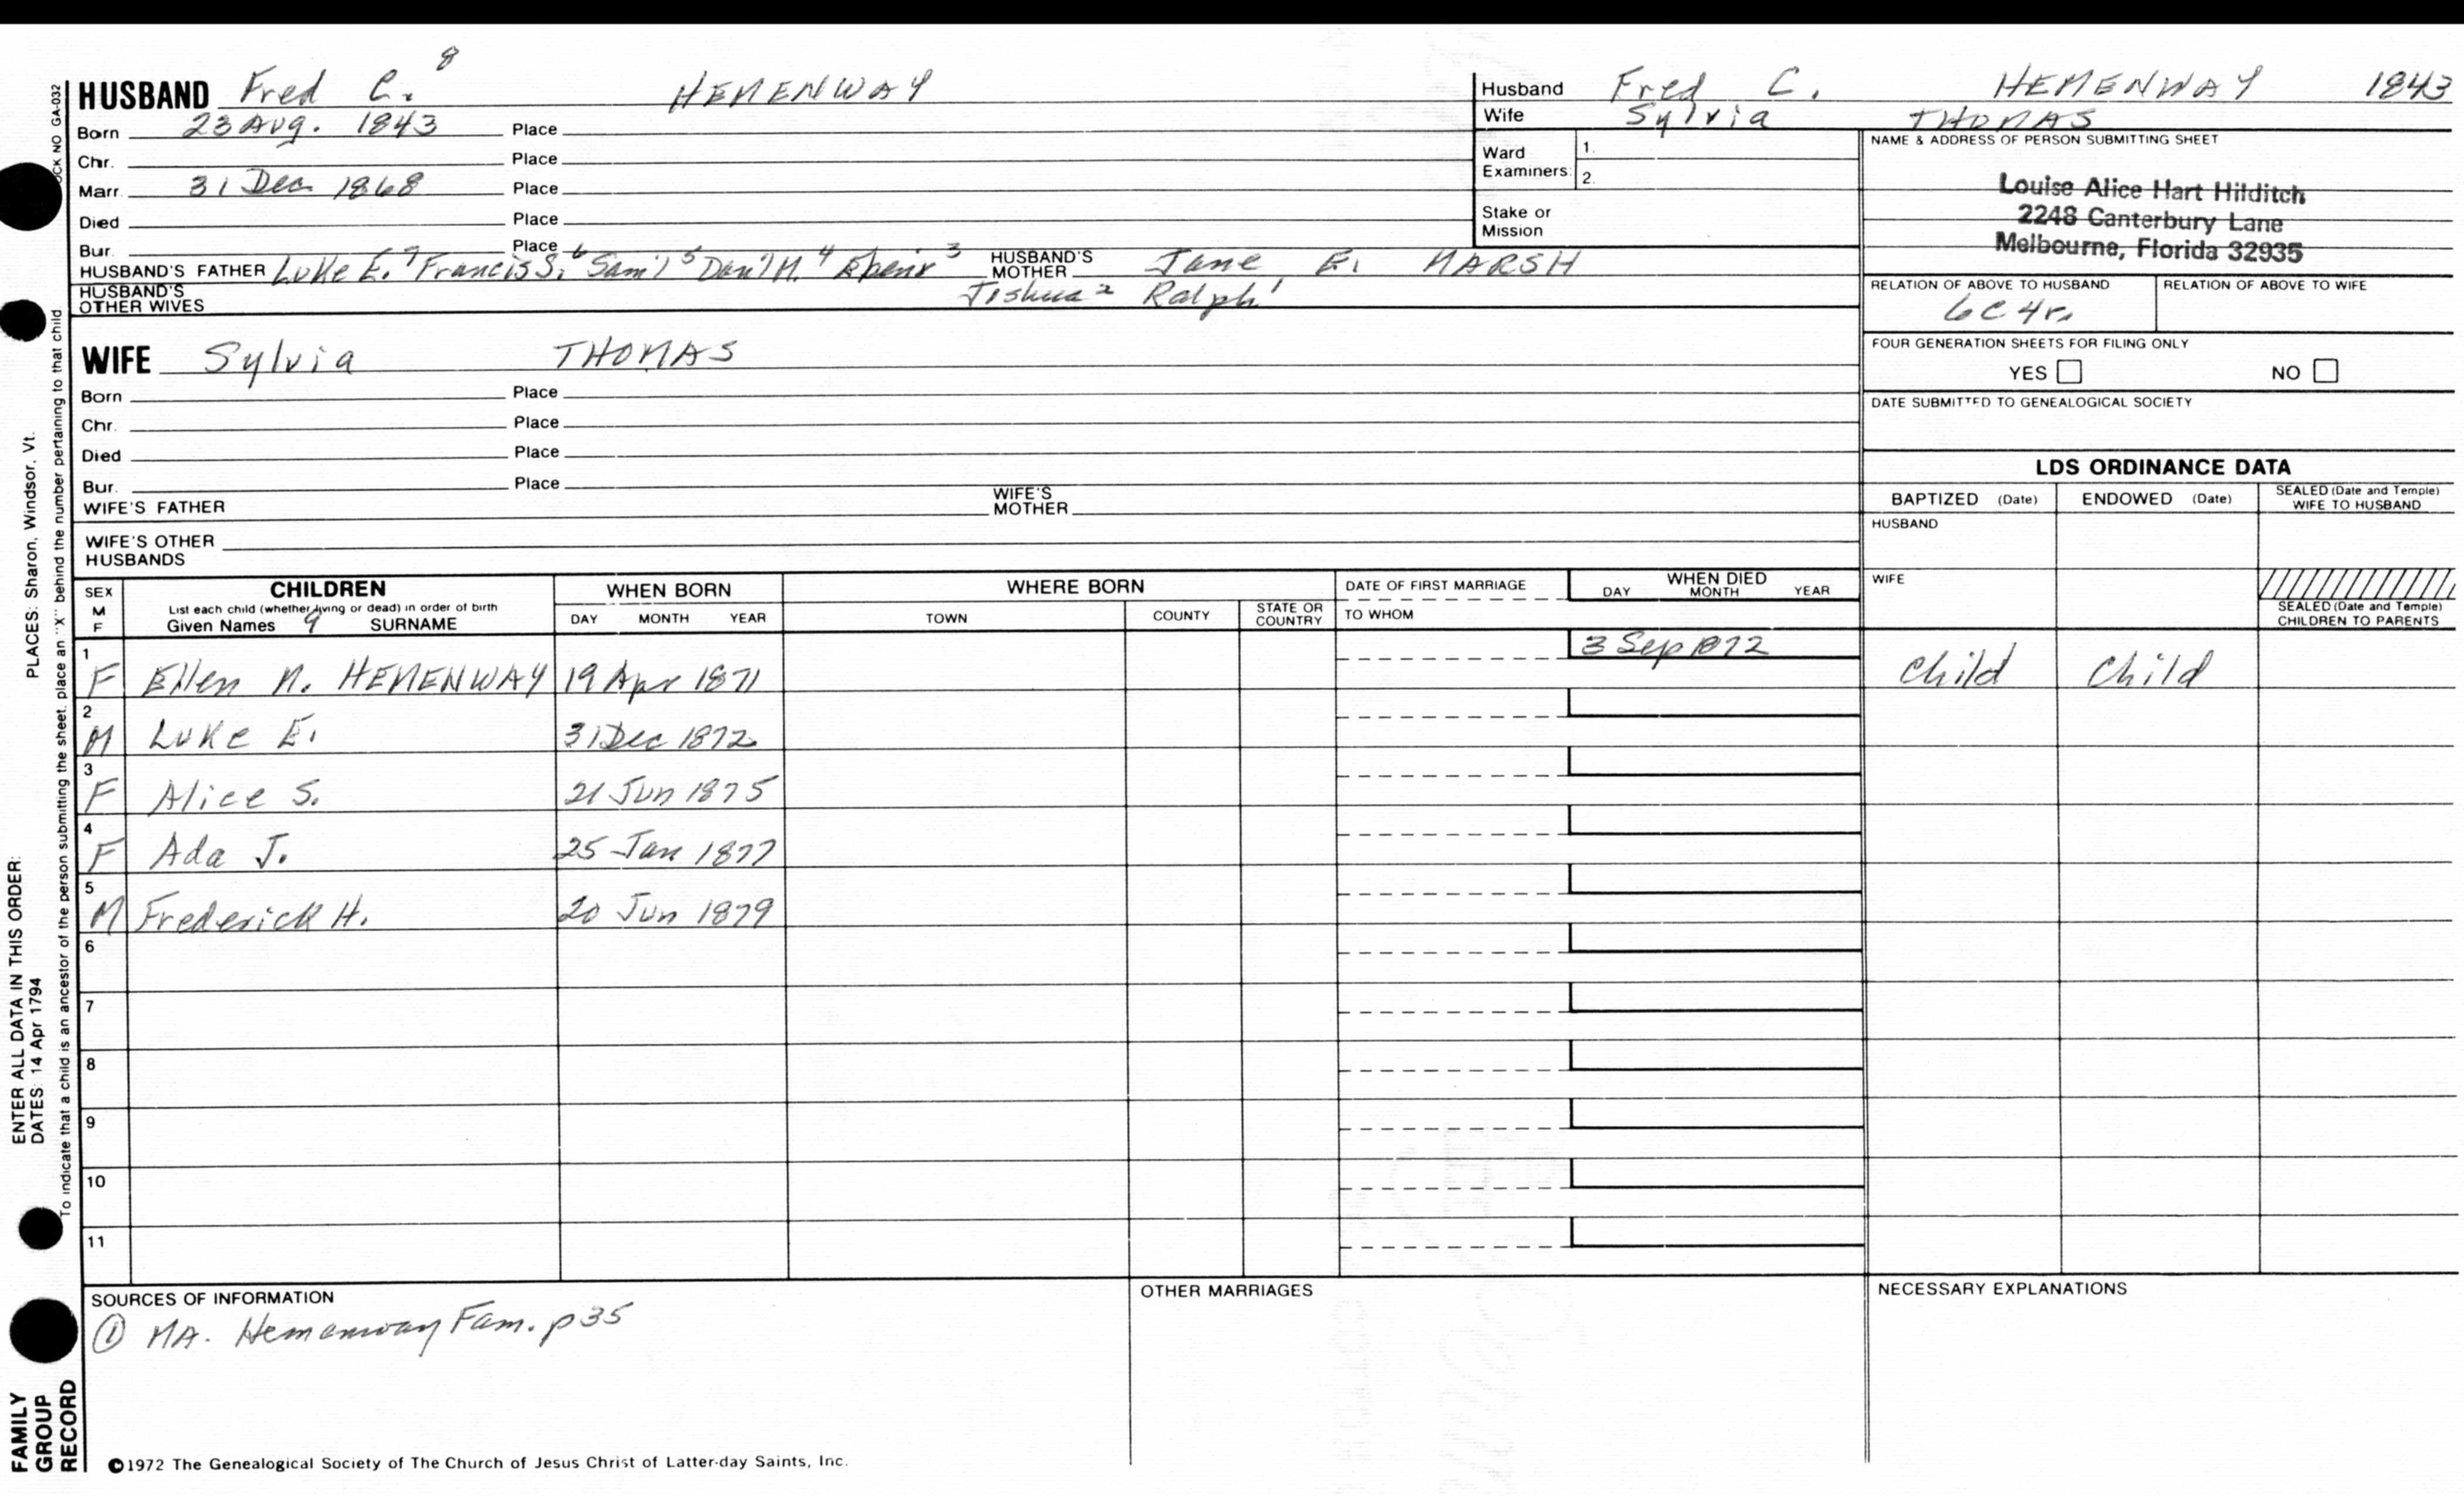 HUSBAND Fred C. 8 HEMENWAY
Born 23 Aug. 1843 Place
Chr. Place
Marr. 31 Dec 1868 Place
Died Place
Bur. Place
HUSBAND'S FATHER Luke E. 7 Francis S. 6 Sam'l 5 Dan'l M. 4 Ebenr 3 HUSBAND'S MOTHER Jane E. MARSH
HUSBAND'S OTHER WIVES Joshua 2 Ralph 1
Husband Fred C. HEMENWAY 1843
Wife Sylvia THOMAS
Ward Examiners: 1. 2.
Stake or Mission
NAME & ADDRESS OF PERSON SUBMITTING SHEET
Louise Alice Hart Hilditch
2248 Canterbury Lane
Melbourne, Florida 32935
RELATION OF ABOVE TO HUSBAND RELATION OF ABOVE TO WIFE
6C 4r.
FOUR GENERATION SHEETS FOR FILING ONLY
YES NO
DATE SUBMITTED TO GENEALOGICAL SOCIETY
WIFE Sylvia THOMAS
Born Place
Chr. Place
Died Place
Bur. Place
WIFE'S FATHER WIFE'S MOTHER
WIFE'S OTHER HUSBANDS
LDS ORDINANCE DATA
BAPTIZED (Date) ENDOWED (Date) SEALED (Date and Temple) WIFE TO HUSBAND
HUSBAND
WIFE
SEALED (Date and Temple) CHILDREN TO PARENTS
SEX M F
CHILDREN
List each child (whether living or dead) in order of birth
Given Names 9 SURNAME
WHEN BORN
DAY MONTH YEAR
WHERE BORN
TOWN COUNTY STATE OR COUNTRY
DATE OF FIRST MARRIAGE
TO WHOM
WHEN DIED
DAY MONTH YEAR
1 F Ellen M. HEMENWAY 19 Apr 1871 3 Sep 1872 Child Child
2 M Luke E. 31 Dec 1872
3 F Alice S. 21 Jun 1875
4 F Ada J. 25 Jan 1877
5 M Frederick H. 20 Jun 1879
6
7
8
9
10
11
SOURCES OF INFORMATION
① MA. Hemenway Fam. p 35
OTHER MARRIAGES
NECESSARY EXPLANATIONS
©1972 The Genealogical Society of The Church of Jesus Christ of Latter-day Saints, Inc.
FAMILY GROUP RECORD
ENTER ALL DATA IN THIS ORDER:
DATES: 14 Apr 1794
PLACES: Sharon, Windsor, Vt.
To indicate that a child is an ancestor of the person submitting the sheet, place an "X" behind the number pertaining to that child
NO GA-032